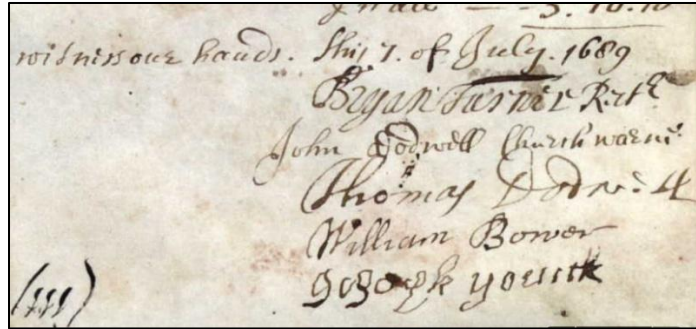 in all — 3. 10. 10
witness our hands. this 7. of July. 1689
Bryan Turner Rectr
John Dodwell Churchwarne
Thomas Dodwell
William Bower
Joseph
(111)